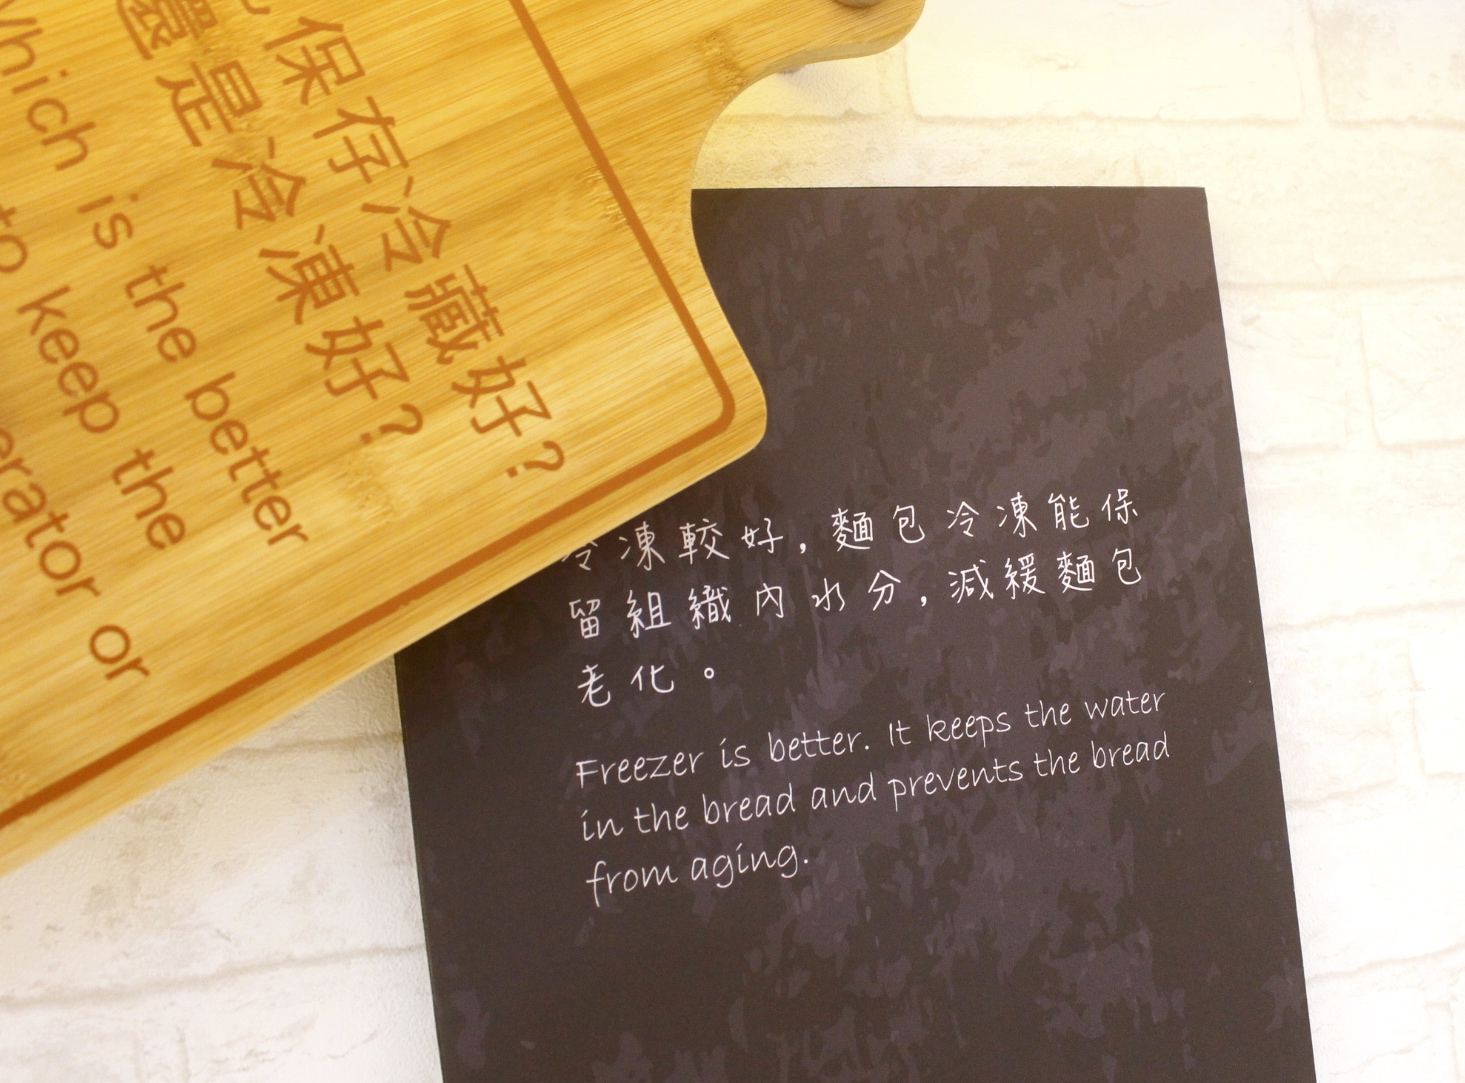 保存冷藏好?
還是冷凍好?
Which is the better
to keep the
or
冷凍較好,麵包冷凍能保
留組織內水分,減緩麵包
老化。
Freezer is better. It keeps the water
in the bread and prevents the bread
from aging.